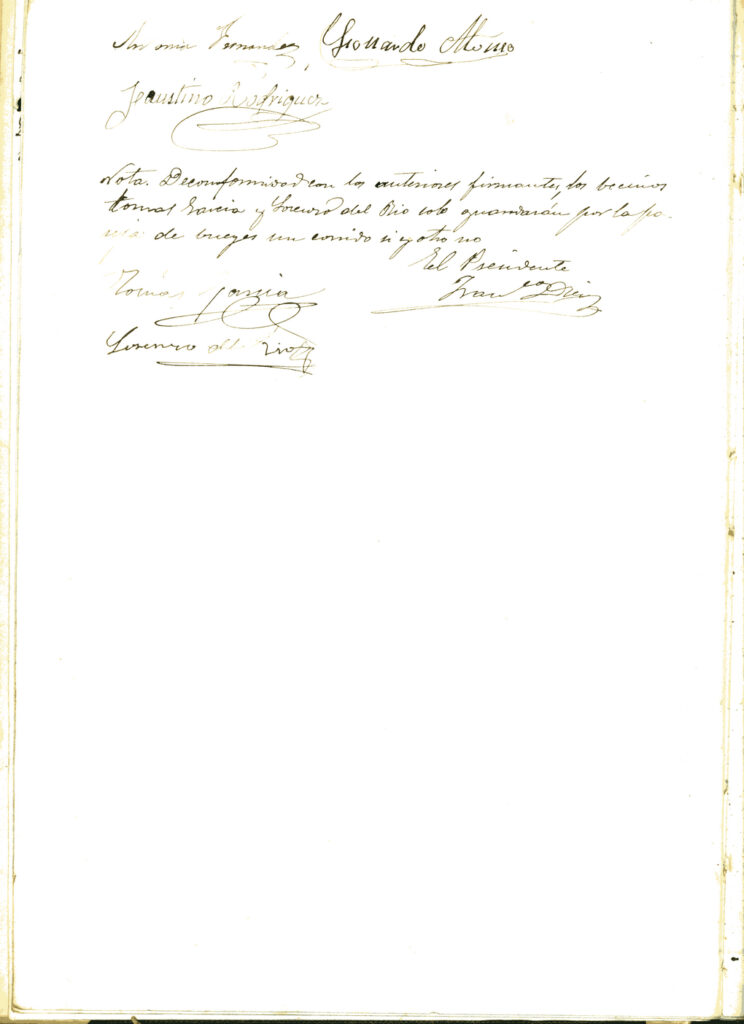 Antonia Fernandez Leonardo Alonso
Faustino Rodriguez
Nota. Deconformidad con los anteriores firmantes, los becinos
tomas Garcia y Lorenzo del Rio solo guardarán por la pa-
reja de bueyes un corrido si y otro no
El Presidente
Tomás Garcia Fran.co Diez
Lorenzo del Rio